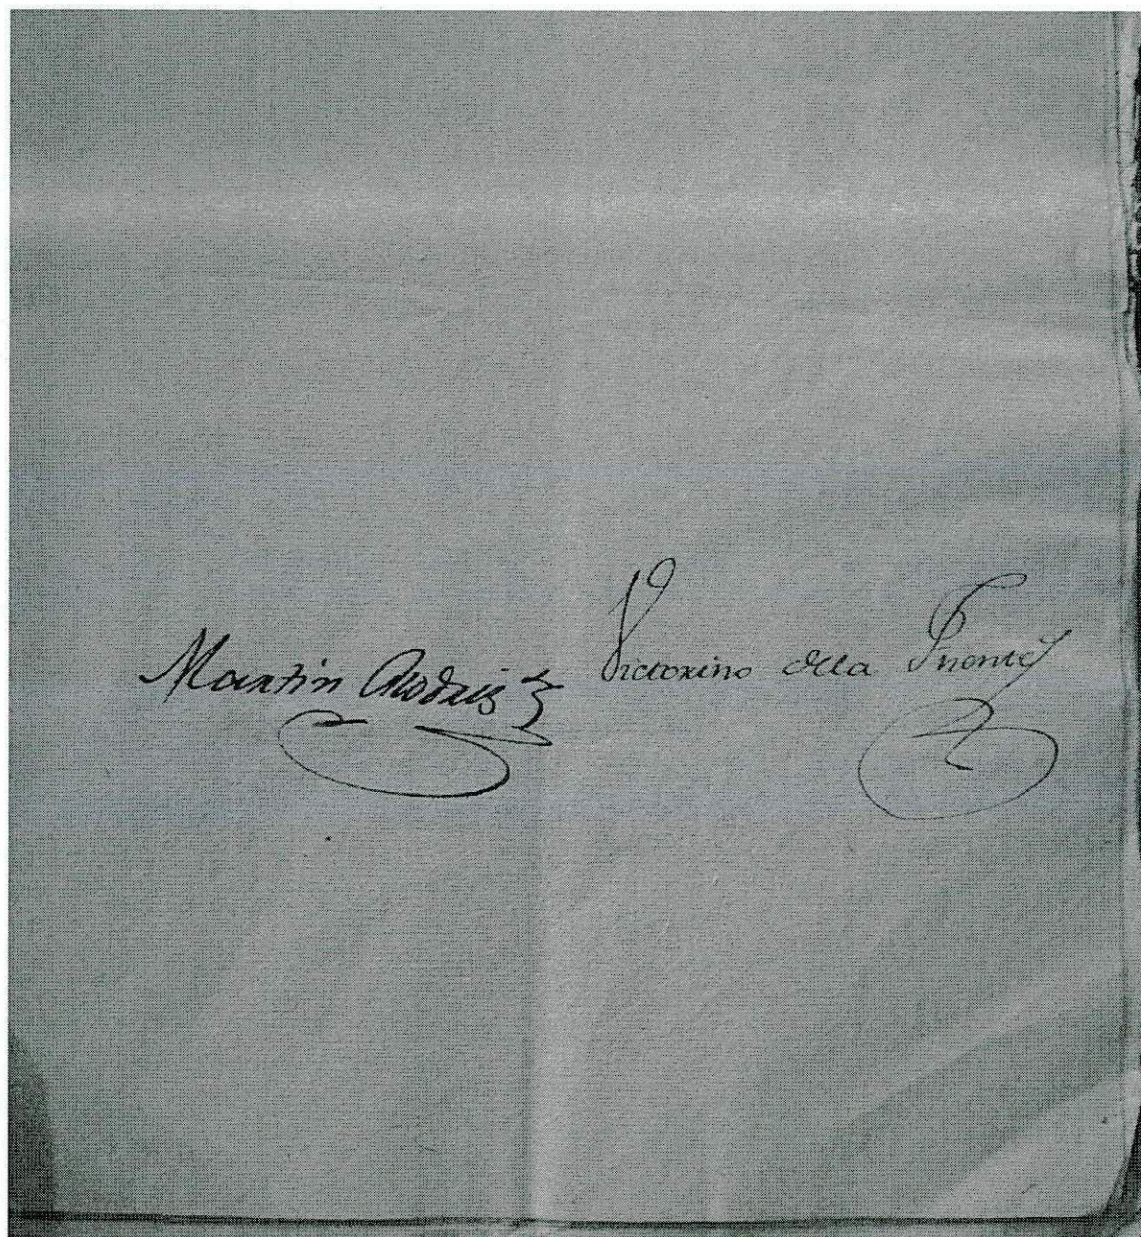 Martin Rodrig^z
Victorino dela Puente